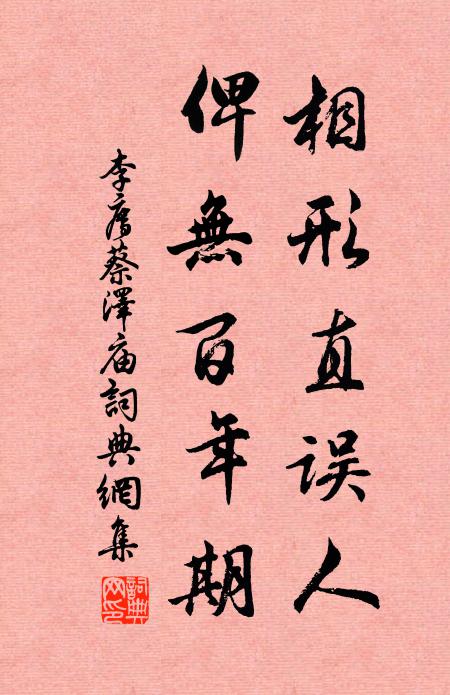 相形直误人
俾無百年期
李廌蔡澤庙詞典網集
詞典
网印